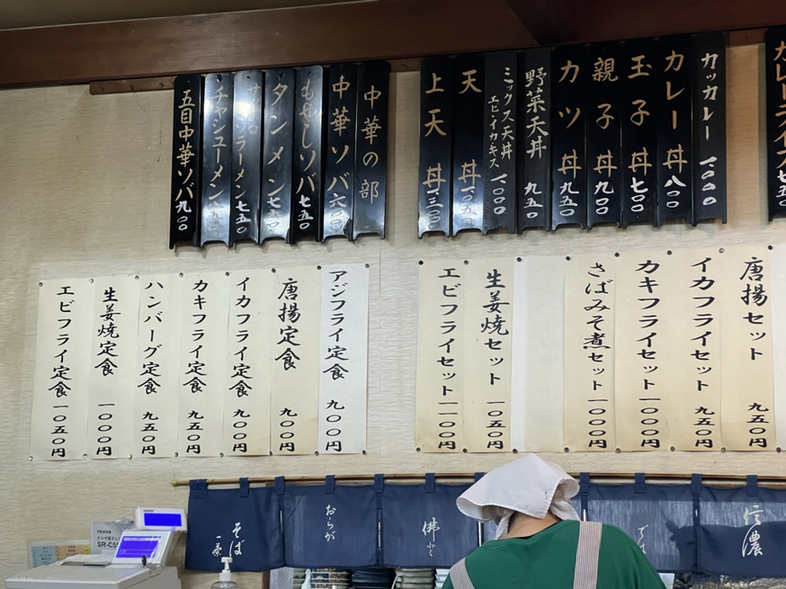 カレーライス 七五〇
カツカレー 一、〇〇〇
カレー丼 八〇〇
玉子丼 七〇〇
親子丼 九〇〇
カツ丼 九五〇
野菜天丼 九五〇
ミックス天丼 エビ・イカ・キス 一、〇〇〇
天丼 一、〇五〇
上天丼 一、三〇〇
中華の部
中華ソバ 六〇〇
もやしソバ 七五〇
タンメン 七五〇
チャシューメン
五目中華ソバ 九〇〇
唐揚セット 九五〇円
イカフライセット 九五〇円
カキフライセット 一〇〇〇円
さばみそ煮セット 一〇〇〇円
生姜焼セット 一〇五〇円
エビフライセット 一一〇〇円
アジフライ定食 九〇〇円
唐揚定食 九〇〇円
イカフライ定食 九〇〇円
カキフライ定食 九五〇円
ハンバーグ定食 九五〇円
生姜焼定食 一〇〇〇円
エビフライ定食 一〇五〇円
信濃
おらが
そば
一茶